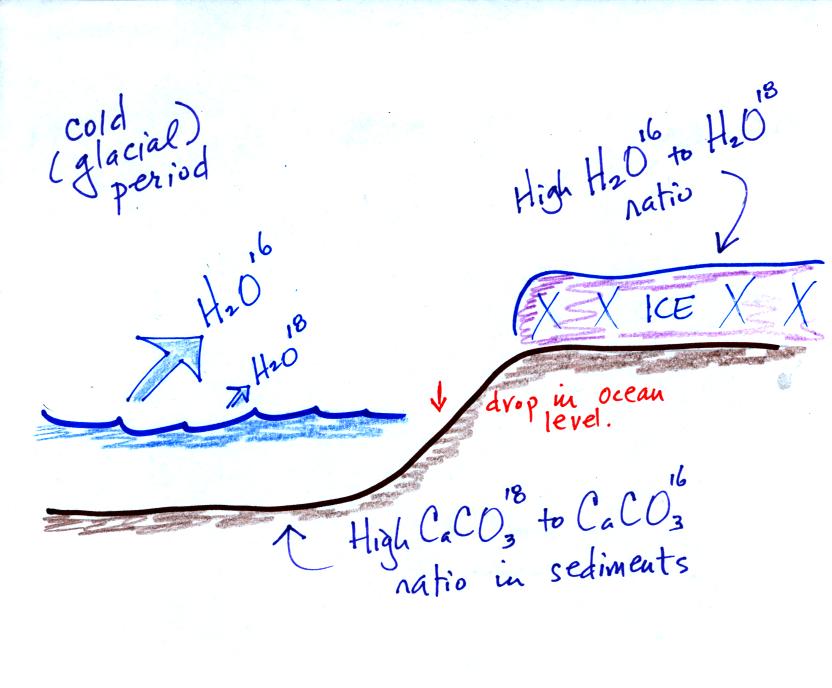 cold
(glacial)
period
High H₂O¹⁶ to H₂O¹⁸
ratio
H₂O¹⁶
H₂O¹⁸
X X ICE X X
drop in ocean
level.
High CaCO₃¹⁸ to CaCO₃¹⁶
ratio in sediments